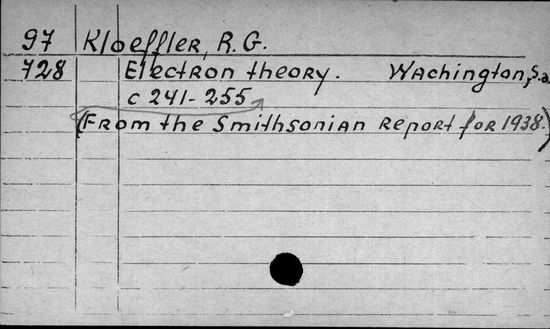 97 Kloeffler, R.G.
728 Electron theory. Wachington, S.a.
c 241-255
(From the Smithsonian Report for 1938.)